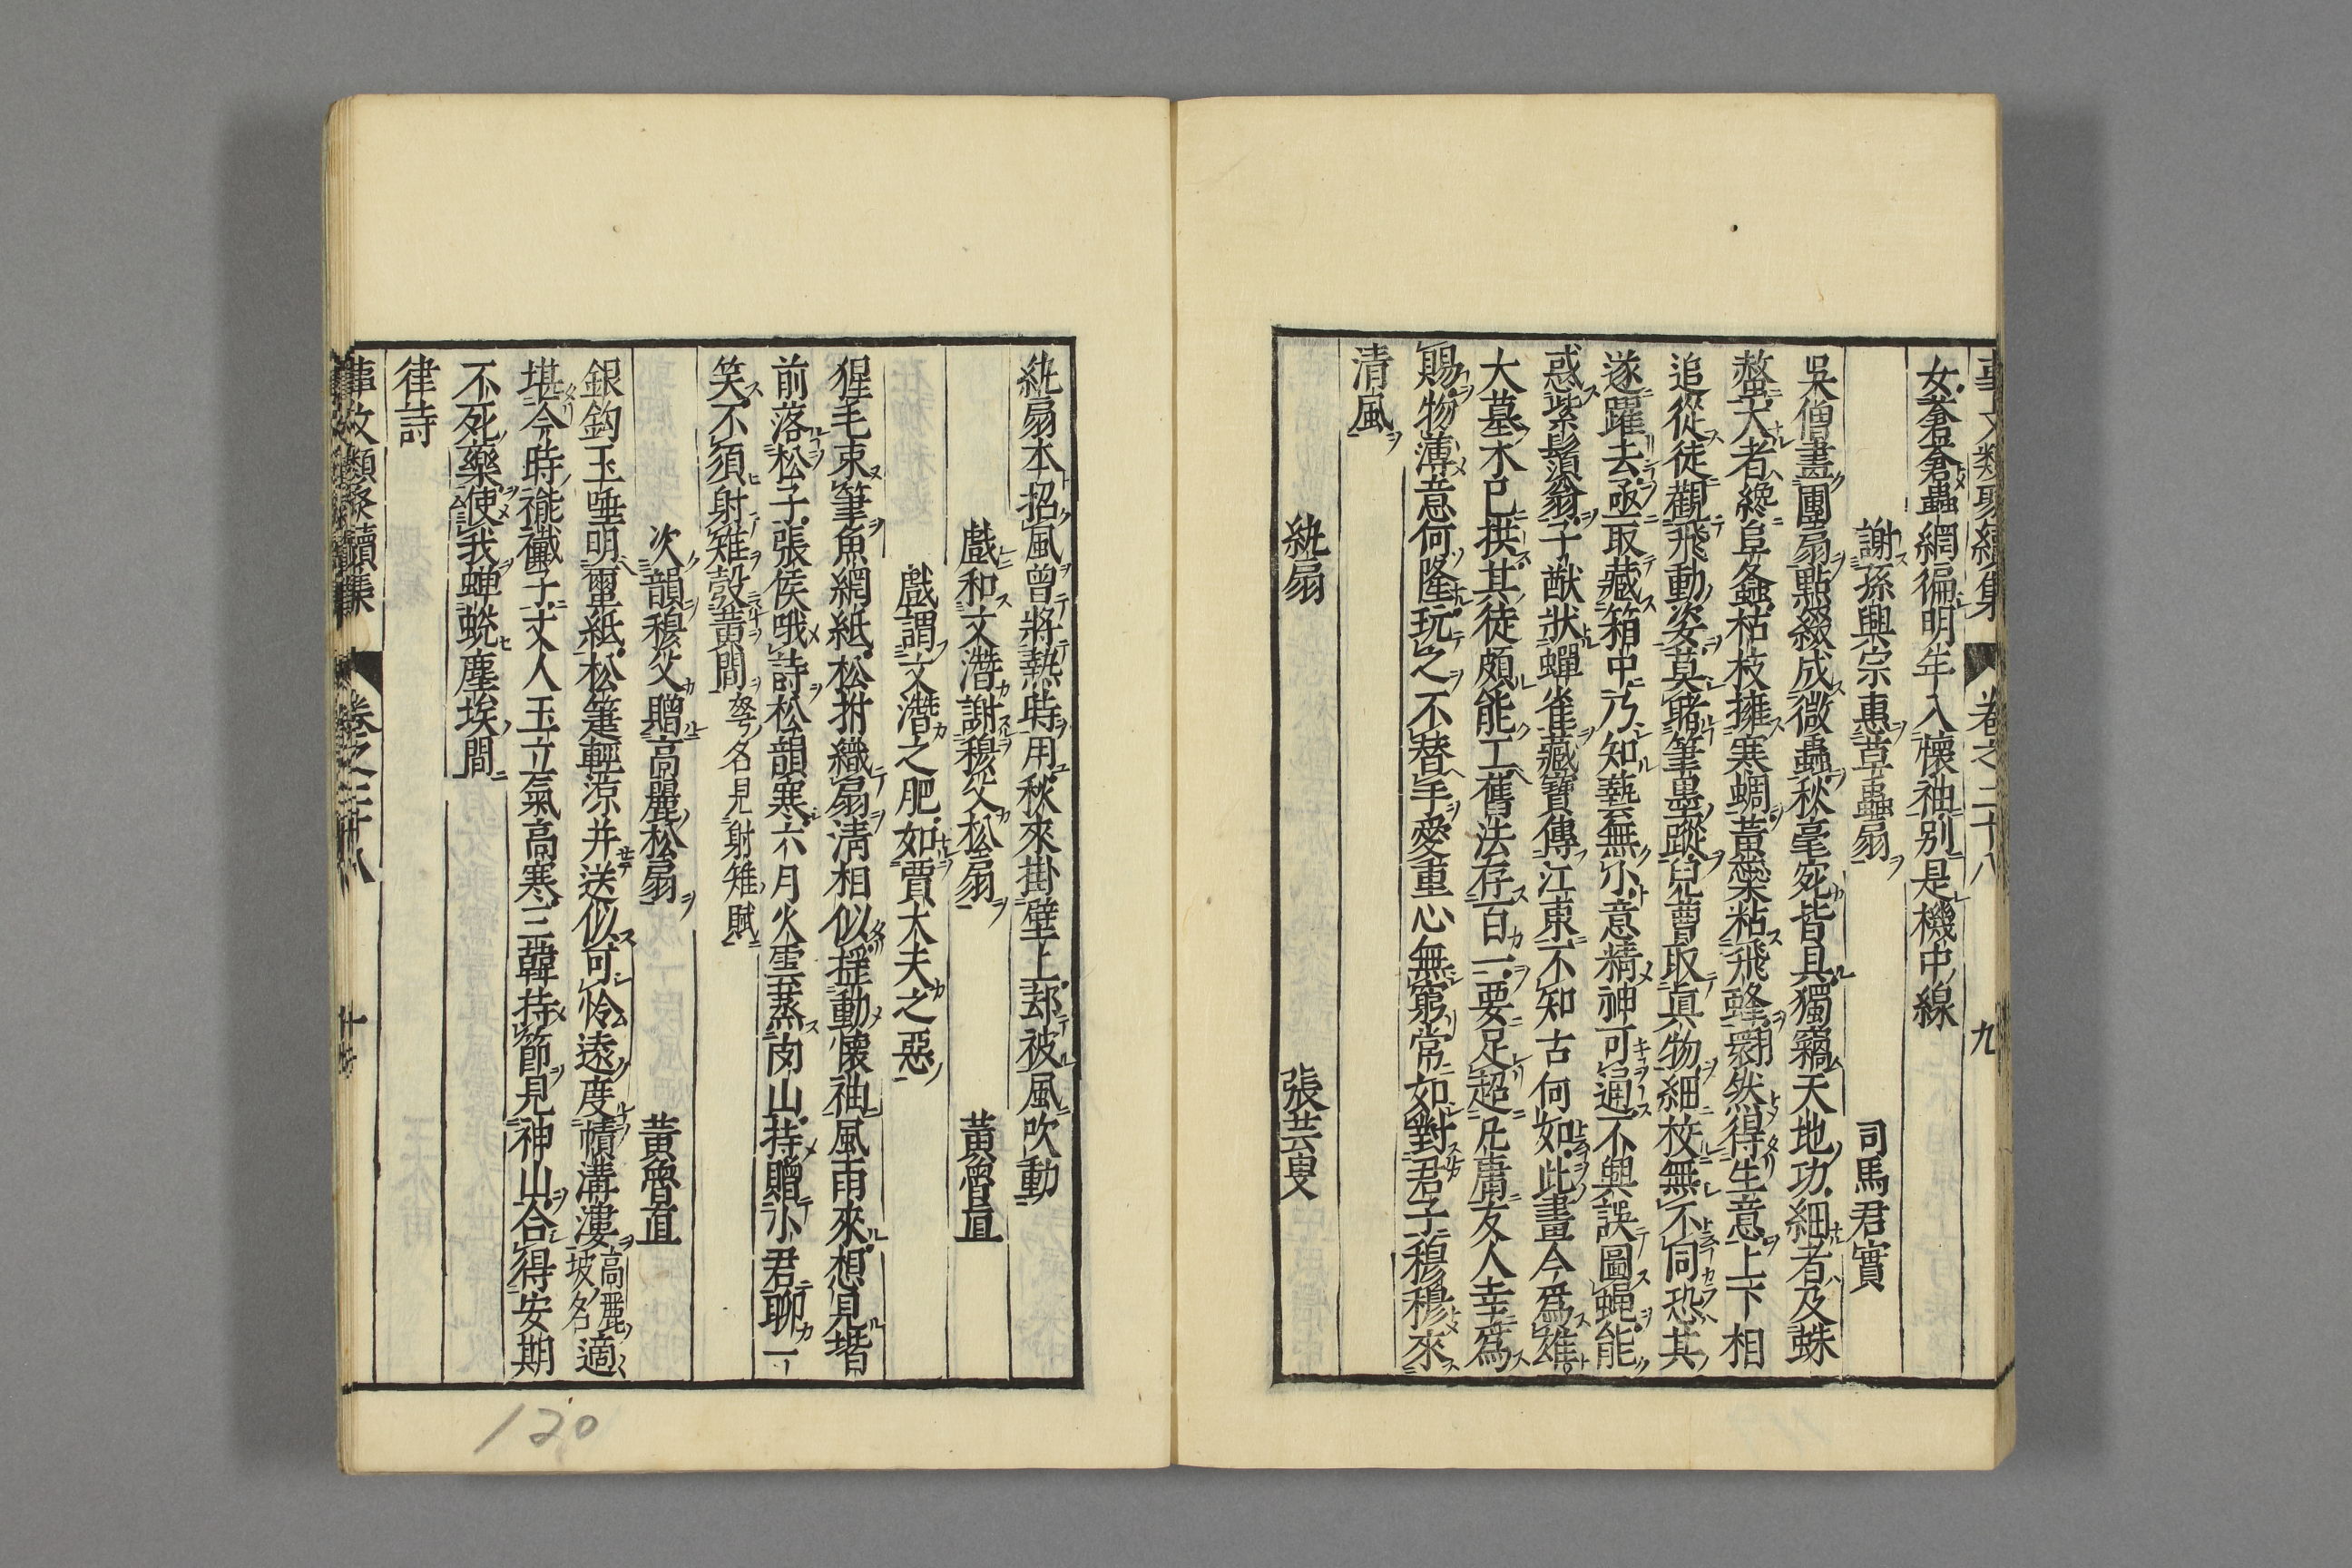 事文類聚續集 卷之二十八 九
女蒼蒼蟲網徧明年入懷袖別是機中線
謝孫興宗惠草蟲扇 司馬君實
吳僧畫團扇點綴成微蟲秋毫宛皆具獨竊天地功細者及蛛
螯大者纔阜螽枯枝擁寒蜩黃蘂粘飛蜂翾然得生意上下相
追從徒觀飛動姿莫睹筆墨蹤兒曹取真物細校無不同恐其
遂躍去亟取藏箱中乃知藝無小意精神可通不興誤圖蝇能
惑紫鬚翁子猷狀蟬雀藏寶傳江東不知古何如此畫今爲雄
大墓木已拱其徒頗能工舊法存百一要足超凡庸友人幸爲
賜物薄意何隆玩之不替手愛重心無窮常如對君子穆穆來
清風
紈扇 張芸叟
紈扇本招風曾將熱時用秋來掛壁上却被風吹動
戲和文潛謝穆父松扇 黃魯直
戲謂文潛之肥如賈大夫之惡
猩毛束筆魚網紙松拊織扇清相似揺動懷袖風雨來想見堦
前落松子張侯哦詩松韻寒六月火雲蒸肉山持贈小君聊一
笑不須射雉彀黃間弩名見射雉賦
次韻穆父贈高麗松扇 黃魯直
銀鈎玉唾明蠒紙松箑輕涼并送似可怜遠度幘溝漊高麗坡名適
堪今時褦襶子丈人玉立氣高寒三韓持節見神山合得安期
不死藥使我蟬蛻塵埃間
律詩
事文類聚續集 卷之二十八 十
120